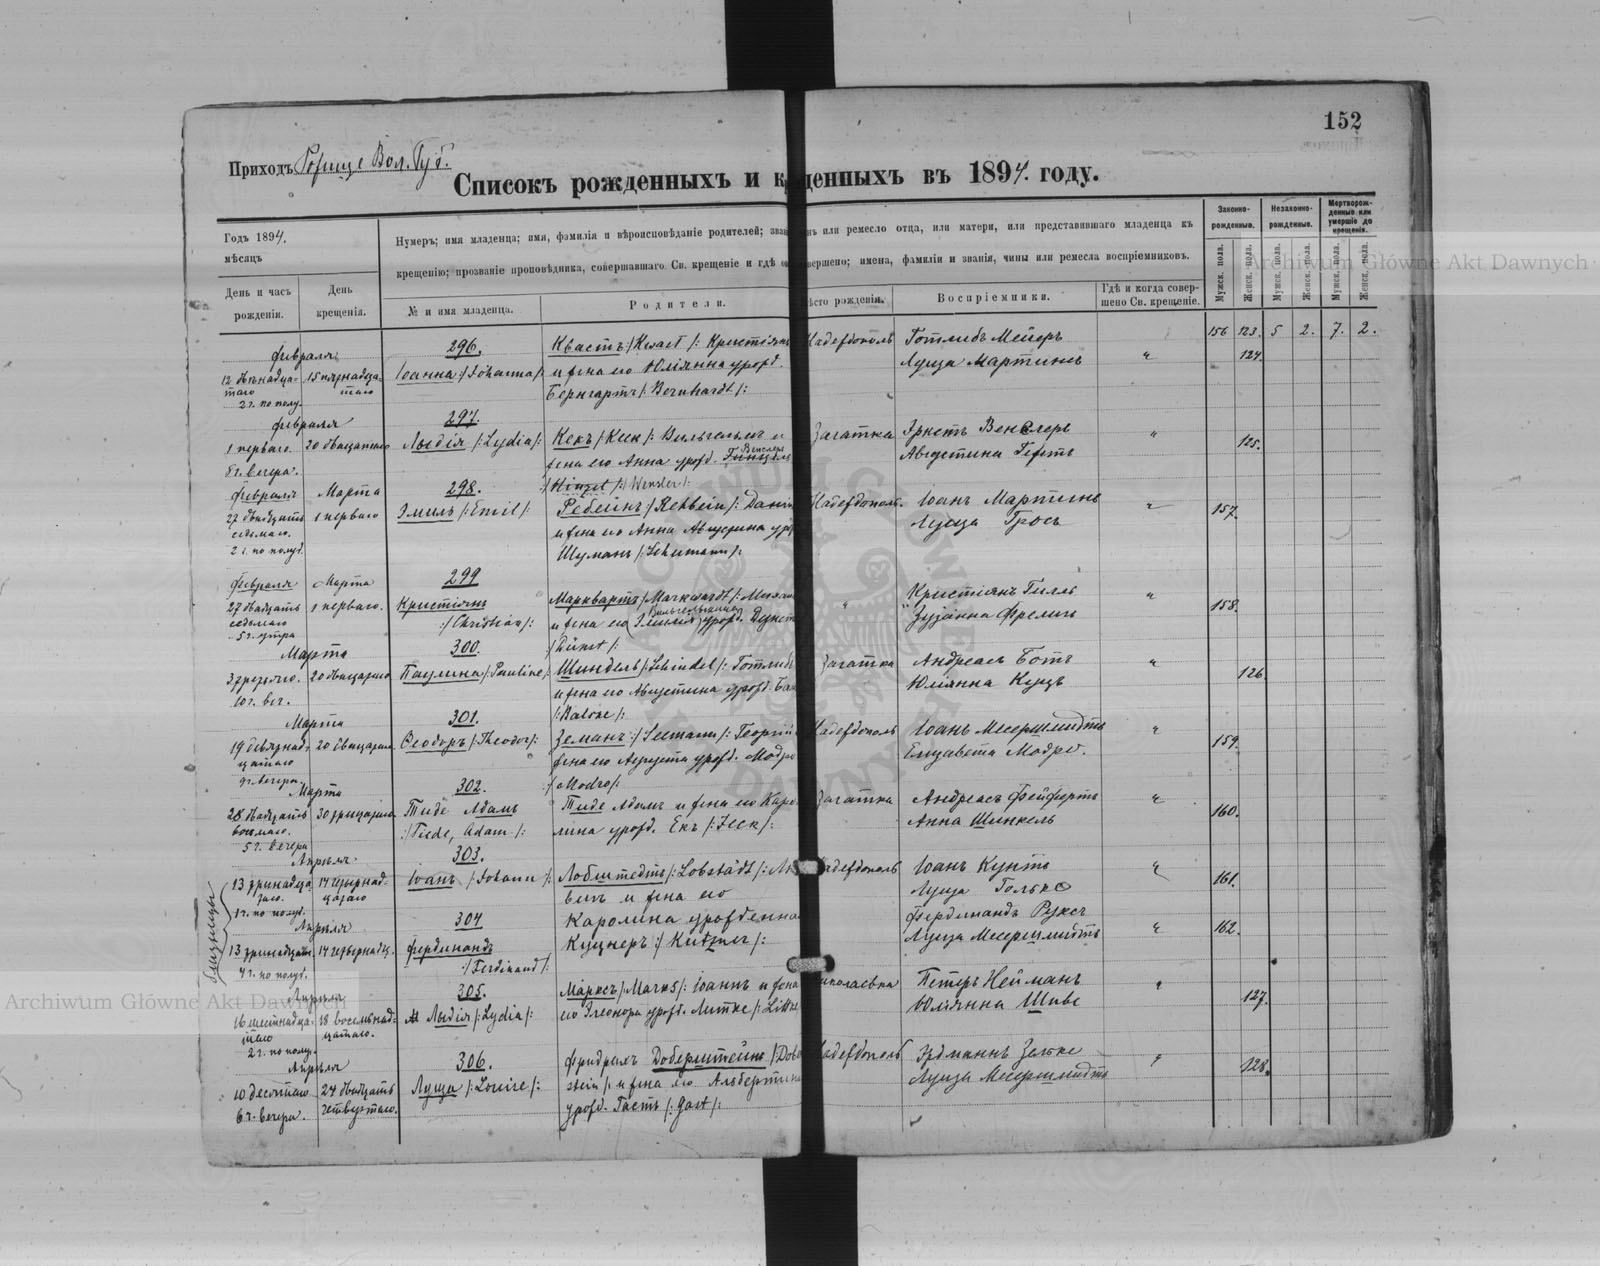 152
Приходъ Рожище Вол. Губ.
Списокъ рожденныхъ и к щенныхъ въ 1894. году.
Годъ 1894.
мѣсяцъ
День и часъ рожденія.
День крещенія.
Нумеръ; имя младенца; имя, фамилія и вѣроисповѣданіе родителей; зва нъ или ремесло отца, или матери, или представившаго младенца къ
крещенію; прозваніе проповѣдника, совершавшаго Св. крещеніе и гдѣ о вершено; имена, фамиліи и званія, чины или ремесла воспріемниковъ.
№ и имя младенца.
Родители.
ѣсто рожденія.
Воспріемники.
Гдѣ и когда совершено Св. крещеніе.
Законно-рожденные.
Незаконно-рожденные.
Мертворожденные или умершіе до крещенія.
Мужск. пола.
Женск. пола.
Мужск. пола.
Женск. пола.
Мужск. пола.
Женск. пола.
156 123. 5 2. 7. 2.
февраля
296.
Квастъ /: Kwast /: Кристіянъ
Надеждополь
Готлибъ Мейеръ
12 двѣнадца-
15 пятнадца-
Іоанна /: Johanna /:
и жена его Юліянна урожд.
Луиза Мартинъ
124.
таго
таго
2 ч. по полу.
Бернгартъ /: Bernhardt /:
февраля
297.
1 перваго.
20 двацатаго
Лыдія /: Lydia /:
Кекъ /: Keck /: Вильгельмъ и
Загатка
Эрнстъ Венслеръ
125.
8 ч. вечера.
жена его Анна урожд. Гинцель
Венслеръ
Августина
/: Hinzel /: Wensler /:
февраля
Марта
298.
27 двадцать
1 перваго
Эмиль /: Emil /:
Ребейнъ /: Rehbein /:
Надеждополь.
Іоанъ Мартинъ
157.
седьмаго.
и жена его Анна Августина урожд
Луиза Гросъ
2 ч. по полуд.
Шуманъ /: Schumann /:
февраля
Марта
299
27 двадцать
1 перваго.
Кристіянъ
Марквартъ /: Markwardt /:
Кристіянъ Гилль
158.
седьмаго
/: Christian /:
и жена его Эмилія урожд. Дунст
Вильгельмина
Зузанна Фрелигъ
5 ч. утра
/: Dünst /:
Марта
300.
3 третяго.
20 двацатаго
Паулина /: Pauline /:
Шиндель /: Schindel /: Готлибъ
Загатка
Андреасъ Ботъ
126.
10 ч. веч.
и жена его Августина урожд.
Юліянна Куцъ
Марта
301.
19 девятнад-
20 двацатаго
Феодоръ /: Theodor /:
Земанъ /: Seemann /: Георгій
Надеждополь
Іоанъ Месершмидтъ
159.
цатаго
жена его Августа урожд. Модро
Елизавета Модро.
9 ч. вечера
/: Modro /:
Марта
302.
28 двадцать
30 трицатаго
Тиде Адамъ
Тиде Адамъ и жена его Каро-
Загатка
Андреасъ Фейфертъ
160.
восьмаго.
/: Tiede, Adam /:
лина урожд. Екъ /: Jeck /:
Анна Шинкель
5 ч. вечера
Апрѣля
303.
близнецы
13 тринадца
14 четырнад-
Іоанъ /: Johann /:
Лобштедтъ /: Lobstädt /:
Надеждополь
Іоанъ Кунтъ
161.
таго.
цатаго
вигъ и жена его
Луиза Гольке
1 ч. по полуд.
Апрѣля
304
Каролина урожденная
Фердинандъ Руксъ
13 тринадцат.
14 четырнадц.
Фердинандъ
Куцнеръ /: Kutzner /:
Луиза Месершмидтъ
162.
4 ч. по полуд.
/: Ferdinand /:
Апрѣля
305.
Марксъ /: Marks /: Іоаннъ и жена
николаевка
Петеръ Нейманъ
16 шестнадца-
18 восемьнад-
Лыдія /: Lydia /:
его Элеонора урожд. Литке /: Littke
Юліянна Шиве
127.
таго
цатаго.
2 ч. по полу.
Апрѣля
306.
Фридрихъ Доберштейнъ /: Dober
Надеждополь
Эрдманнъ Зелке
128.
10 десятаго
24 двадцать
Луиза /: Louise /:
stein /: и жена его Альбертина
Луиза Месершмидтъ
6 ч. вечера.
четвертаго.
урожд. Гастъ /: Gast /:
Archiwum Główne Akt Dawnych
Archiwum Główne Akt Dawnych